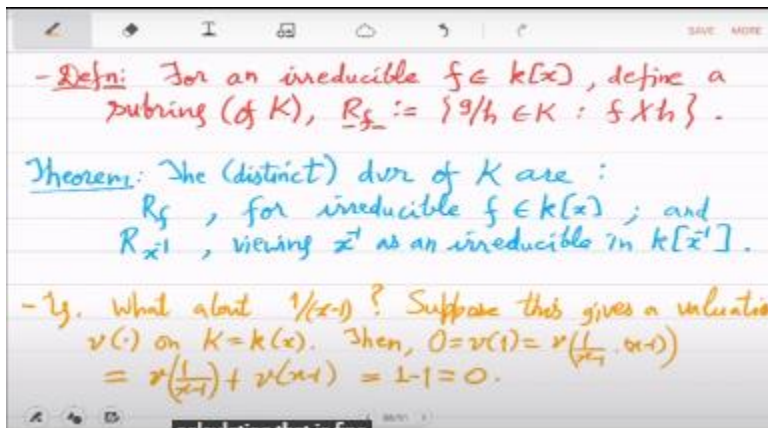 SAVE MORE
- Defn: For an irreducible f ∈ k[x], define a
subring (of K), R_f := {g/h ∈ K : f ∤ h}.
Theorem: The (distinct) dvr of K are :
R_f , for irreducible f ∈ k[x] ; and
R_{x^{-1}} , viewing x^{-1} as an irreducible in k[x^{-1}].
- Eg. What about 1/(x-1)? Suppose this gives a valuatio
v(·) on K = k(x). Then, 0 = v(1) = v(1/(x-1) · (x-1))
= v(1/(x-1)) + v(x-1) = 1-1 = 0.